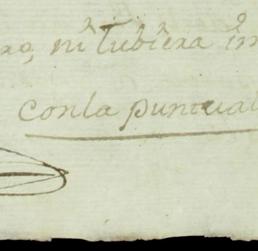 ro, ni tubiera im
con la puntual